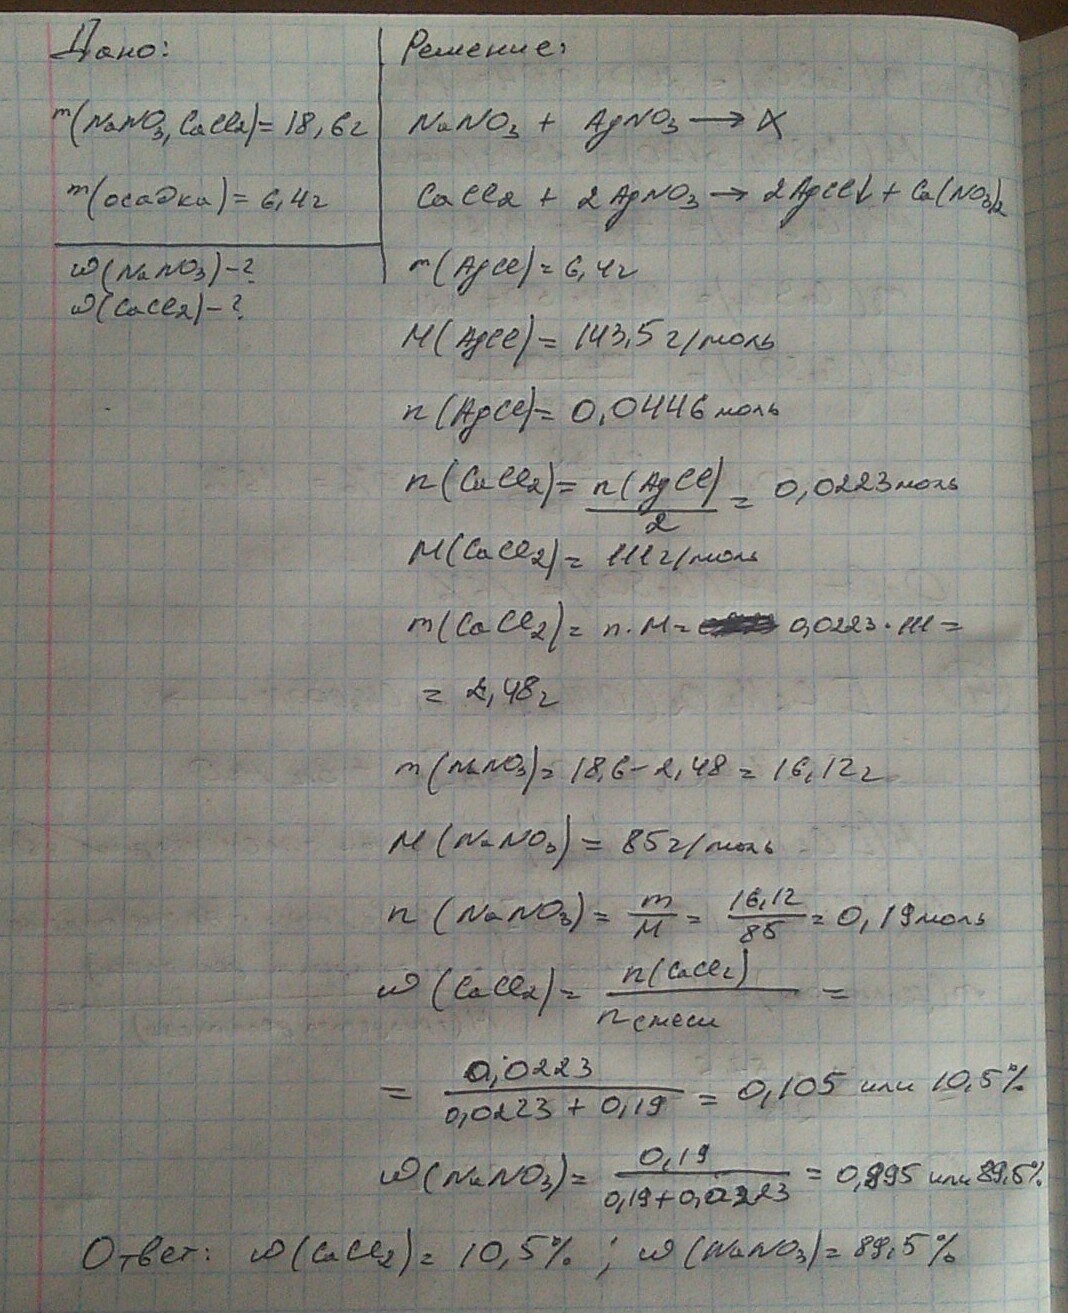 Дано:
m(NaNO3, CaCl2) = 18,6г
m(осадка) = 6,4г
ω(NaNO3) - ?
ω(CaCl2) - ?
Решение:
NaNO3 + AgNO3 → X
CaCl2 + 2AgNO3 → 2AgCl↓ + Ca(NO3)2
m(AgCl) = 6,4г
M(AgCl) = 143,5 г/моль
n(AgCl) = 0,0446 моль
n(CaCl2) = n(AgCl)/2 = 0,0223 моль
M(CaCl2) = 111 г/моль
m(CaCl2) = n·M = 0,0223·111 =
= 2,48г
m(NaNO3) = 18,6 - 2,48 = 16,12г
M(NaNO3) = 85 г/моль
n(NaNO3) = m/M = 16,12/85 = 0,19 моль
ω(CaCl2) = n(CaCl2)/n смеси =
= 0,0223/0,0223 + 0,19 = 0,105 или 10,5%
ω(NaNO3) = 0,19/0,19 + 0,0223 = 0,895 или 89,5%
Ответ: ω(CaCl2) = 10,5%; ω(NaNO3) = 89,5%